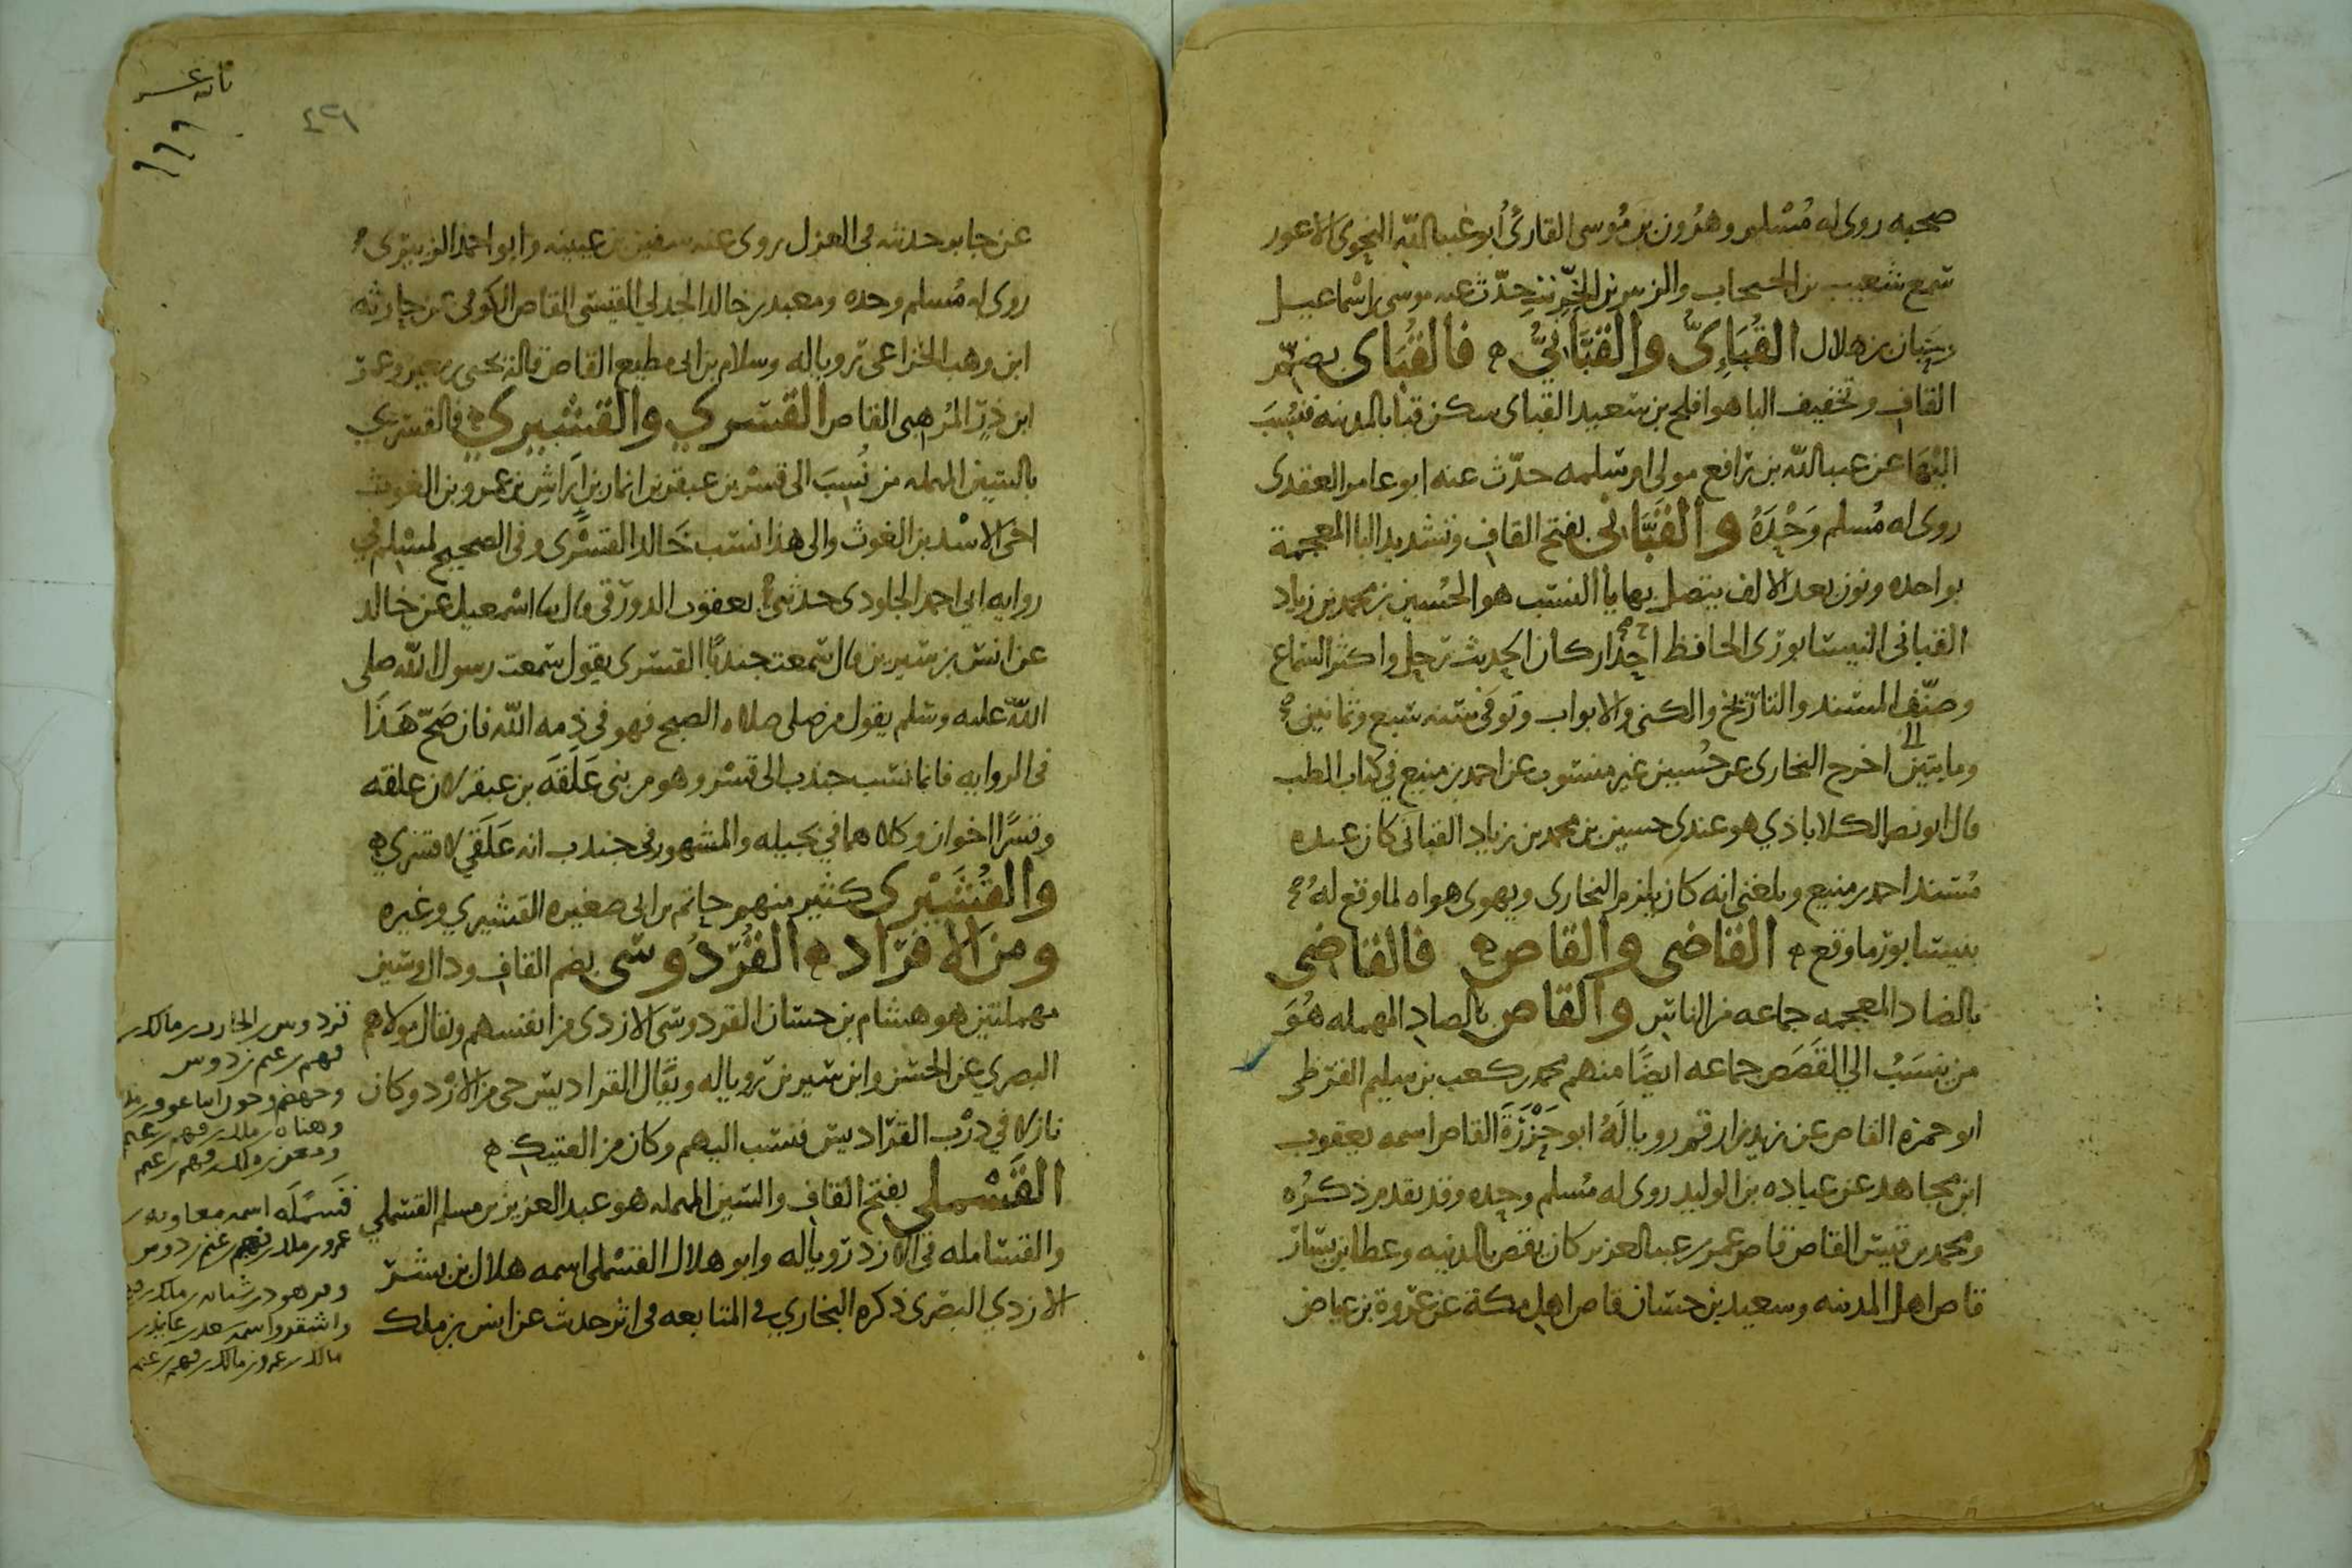 صحبه روى له مُسْلم وهرون بن مُوسى القارئُ أبو عبد الله النحوى الاعور
سَمع شعيب بن الحبحاب والزبير بن الخِرّيت حدّث عنه موسى بن اسْماعيل
وحَبان بن هلال القُبَاءِىُّ والقَبَّانِيُّ ه فالقُبَاى بضمّ
القاف وتخفيف البا هو افلح بن سَعيد القباى سكن قبا بالمدينه فنُسِبَ
اليْهَا عن عبد الله بن رافع مولى ام سَلمه حدّث عنه ابو عامر العقدى
روى له مُسلم وَحْدَهُ والقَبَّانى بفتح القاف وتشديد البا المعجمة
بواحده ونون بعد الالف يتصل بها يا النسَب هو الحُسين بن محمد بن زياد
القبانى النيسَابورى الحافظ احدُ اركان الحديث رحل واكثر السَماع
وصنّف المسَند والتاريخ والكنى والابواب وتوفى سَنه تسع وثمانين
ومايتين اخرج البخارى عن حُسين غير منسوب عن احمد بن منيع في كتاب الطب
قال ابو نصر الكلاباذي هو عندي حسين بن محمد بن زياد القبانى كان عنده
مُسَند احمد بن منيع وبلغنى انه كان يلزم البخارى ويهوى هواه لما وقع لهُ
بنيسَابور ما وقع ه القاضى والقاص ه فالقاضى
بالضاد المعجمه جماعه من الناس والقاص بالصاد المهمله هُوَ
من نسَبُ الي القَصَص جماعه ايضًا منهم محمد بن كعب بن سليم القرظى
ابو حمزه القاص عن زيد بن ارقم رويا لَهُ ابو حَزْرَةَ القاص اسمه يعقوب
ابن مجاهد عن عباده بن الوليد روى له مُسلم وحده وقد تقدم ذكرُه
ومحمد بن قيس القاص قاص عمر بن عبد العزيز كان يقص بالمدينه وعطا بن يسَار
قاص اهل المدينه وسعيد بن حسَان قاص اهل مكة عن عروة بن عياض
٤٢٦
عن جابر حديثه فى العزل روى عنه سفين بن عيينه وابو احمد الزبيرى
روى له مُسلم وحده ومعبد بن خالد الجدلي القيسى القاص الكوفي عن حارثه
ابن وهب الخزاعى رويا له وسلام بن ابى مطيع القاص قاله يحيى بن معين وعمر
ابن ذرّ المُرهبى القاص القسَري والقشيري ه فالقسَري
بالسَين المهمله من نُسِبَ الى قسْر بن عبقر بن انمار بن اِرَاشِ بن عمرو بن الغوث
اخى الاسْد بن الغوث والى هذا نسَب خَالد القسْرى وفى الصحيح لمسْلم في
روايه ابي احمد الجلودى حدثنى يعقوب الدورقى قال نا اسْمعيل عن خالد
عن انسَ بن سَيرين قال سَمعت جندبًا القسَرى يقول سَمعت رسول الله صلى
الله عليه وسَلم يقول من صلى صلاه الصبح فهو في ذِمه الله فان صَحّ هَذَا
فى الروايه فانما نسَب جندب الى قسْر وهو من بنى عَلَقَه بن عبقر لان علقه
وقسْرًا اخوان وكلاهما في بجيله والمشهور فى جندب انه عَلَقي لا قسَري ه
والقُشَيْرى كثير منهم حاتم بن ابى صغيره القشيري وغيره
ومن الافرَاد ه القُردُوسَى بضم القاف ودال وسَين
مهملتين هو هشام بن حسَان القردوسَى الازدى من انفسهم ويقال مولاهم
البصري عن الحسَن وابن سَيرين رويا له ويقال القراديسَ حى من الازد وكان
نازلا في دَرْب القرَاديسَ فنسَب اليهم وكان من العتيك ه
القَسْملى بفتح القاف والسَين المهمله هو عبد العزيز بن مسلم القسَملي
والقسَامله فى الازد رويا له وابو هلال القسْملى اسمه هلال بن بشر
الازدي البصَرى ذكره البخاري في المتابعه فى اثر حدث عن انس بن ملك
قردوس بن الحارث بن مالك بن
فهم بن غنم بن دوس
قَسمَلَه اسمه معاويه بن
عمرو بن مالك بن فهم بن غنم بن دوس
مالك بن عمرو بن مالك بن فهم بن غنم